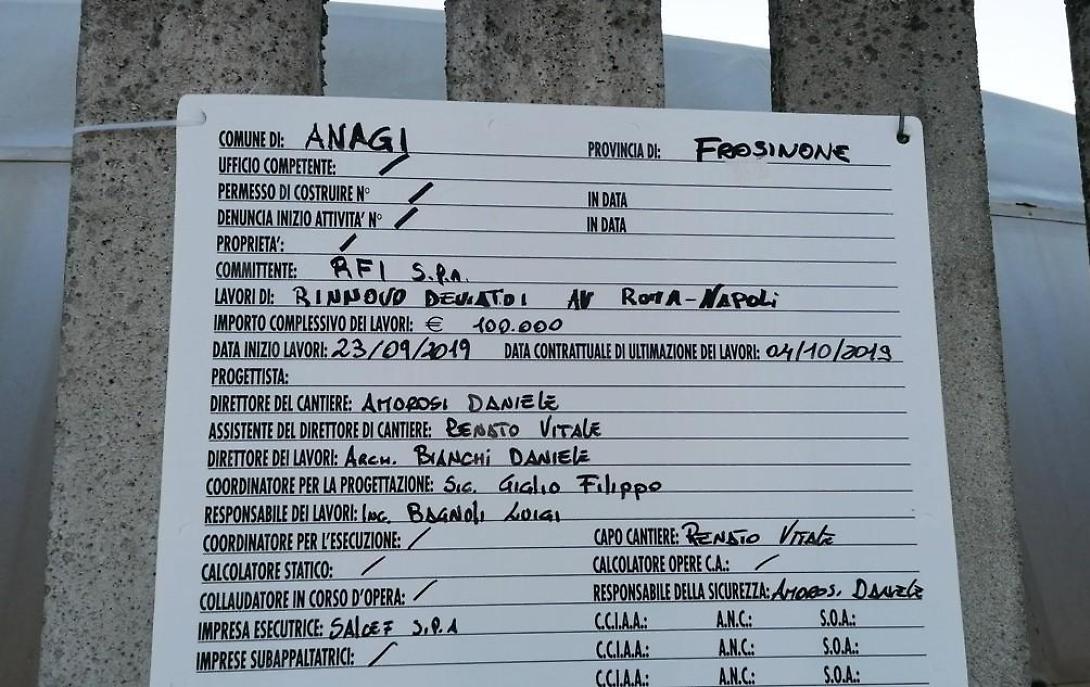 COMUNE DI: ANAGI PROVINCIA DI: FROSINONE
UFFICIO COMPETENTE: /
PERMESSO DI COSTRUIRE N° / IN DATA
DENUNCIA INIZIO ATTIVITA' N° / IN DATA
PROPRIETA': /
COMMITTENTE: RFI S.P.A.
LAVORI DI: RINNOVO DEVIATOI AV ROMA-NAPOLI
IMPORTO COMPLESSIVO DEI LAVORI: € 100.000
DATA INIZIO LAVORI: 23/09/2019 DATA CONTRATTUALE DI ULTIMAZIONE DEI LAVORI: 04/10/2019
PROGETTISTA:
DIRETTORE DEL CANTIERE: AMOROSI DANIELE
ASSISTENTE DEL DIRETTORE DI CANTIERE: RENATO VITALE
DIRETTORE DEI LAVORI: ARCH. BIANCHI DANIELE
COORDINATORE PER LA PROGETTAZIONE: SIG. GIGLIO FILIPPO
RESPONSABILE DEI LAVORI: ING. BAGNOLI LUIGI
COORDINATORE PER L'ESECUZIONE: / CAPO CANTIERE: RENATO VITALE
CALCOLATORE STATICO: / CALCOLATORE OPERE C.A.: /
COLLAUDATORE IN CORSO D'OPERA: / RESPONSABILE DELLA SICUREZZA: AMOROSI DANIELE
IMPRESA ESECUTRICE: SALCEF S.P.A C.C.I.A.A.: A.N.C.: S.O.A.:
IMPRESE SUBAPPALTATRICI: / C.C.I.A.A.: A.N.C.: S.O.A.:
C.C.I.A.A.: A.N.C.: S.O.A.: